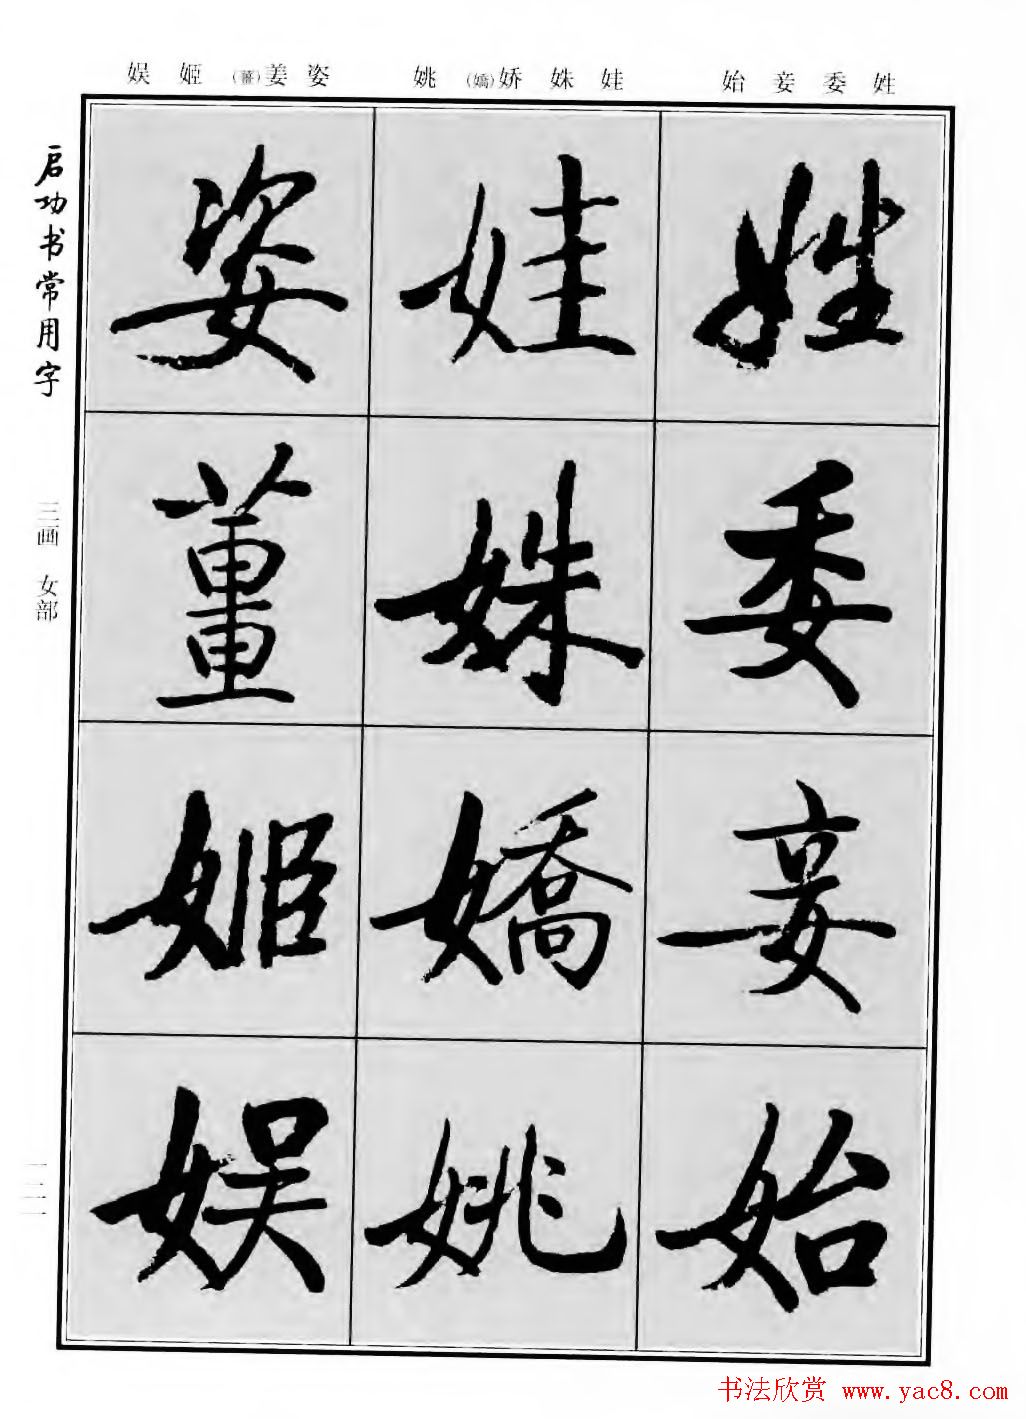 姓委妾始
娃姝娇(嬌)姚
姿姜(薑)姬娱
启功书常用字
三画 女部
姓
委
妾
始
娃
姝
嬌
姚
姿
薑
姬
娱
书法欣赏 www.yac8.com